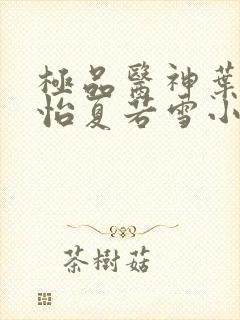 極品醫神葉
怡夏若雪小
茶樹菇